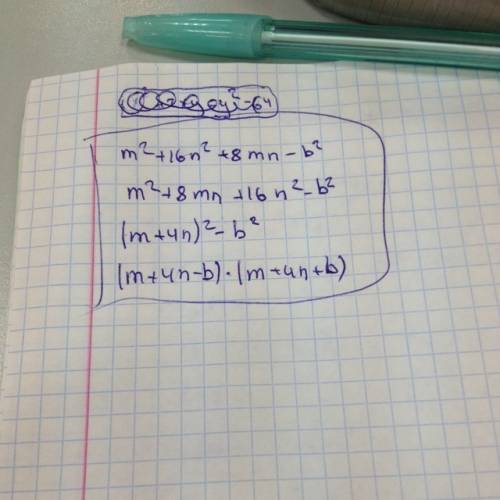 m²+16n²+8mn-b²
m²+8mn+16n²-b²
(m+4n)²-b²
(m+4n-b)·(m+4n+b)